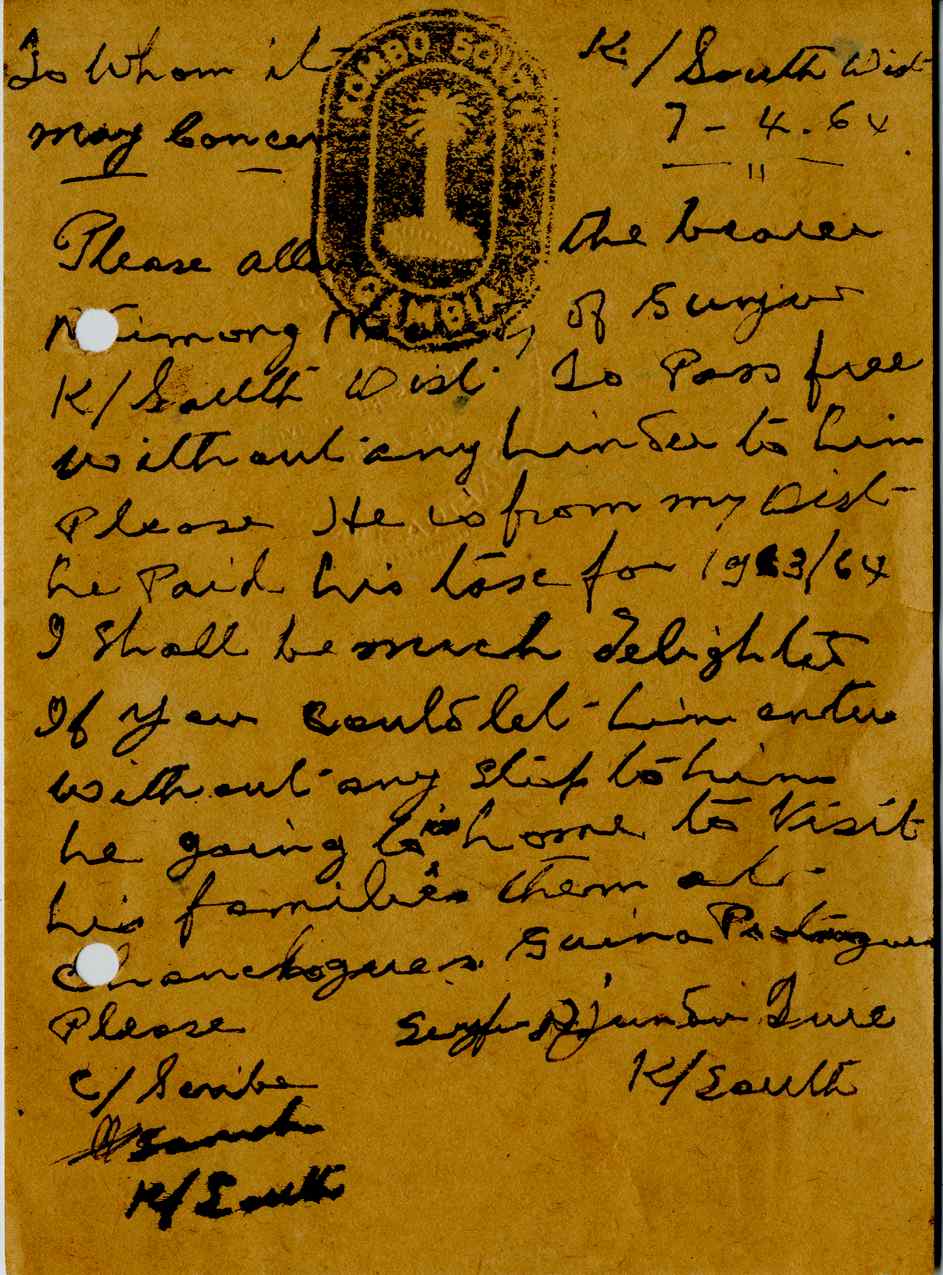 To Whom it
may Concer
K/South Dist
7-4.64
KOMBO SOUTH
GAMBIA
Please all the bearer
of Gunjur
K/South Dist. To Pass free
without any hinder to him
Please He is from my Dist
he Paid his tax for 1963/64
I Shall be much delighted
If you could let him enter
without any slip to him
he going to is home to Visit
his families them at
Guina
Please Seyfu Njundu Ture
K/South
C/Scribe
K/South